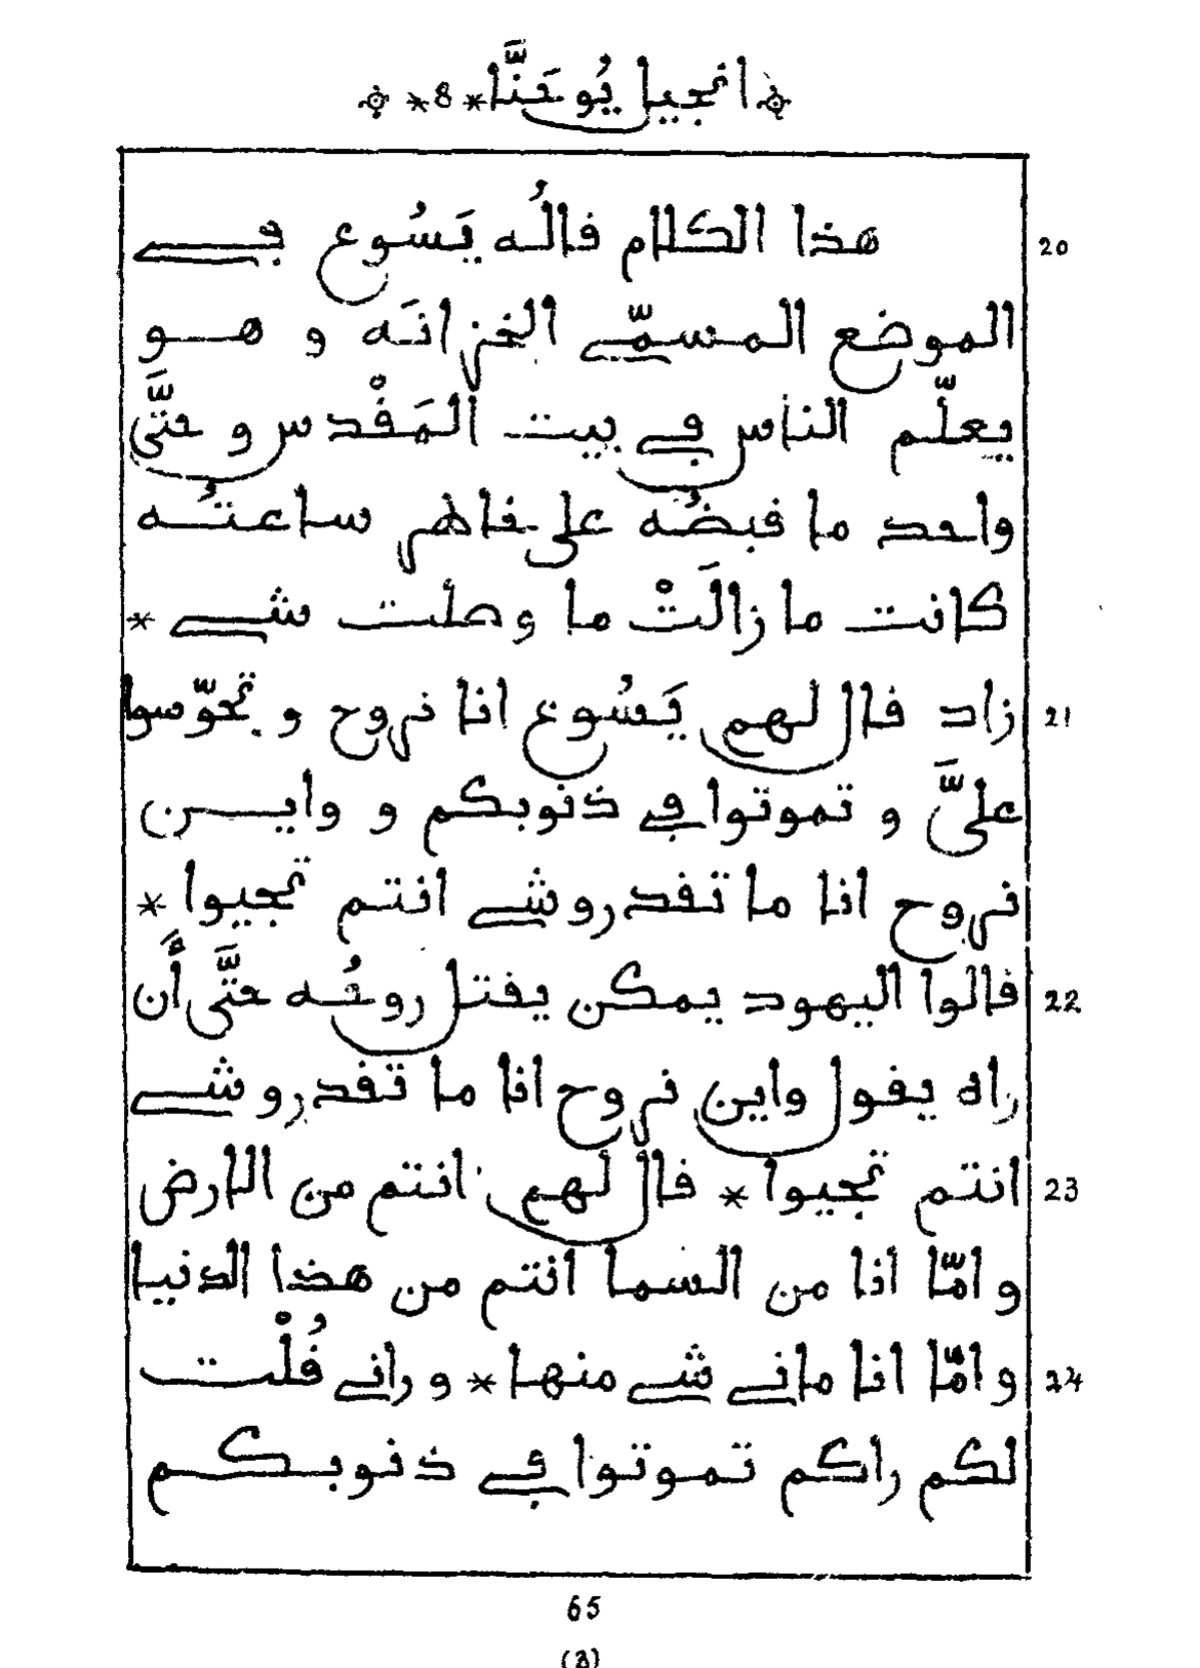 انجيل يُوحَنَّا * 8 *
20 هذا الكلام فالُه يَسُوع ڢے
الموضع المسمّے الخزانَه و هو
يعلّم الناس ڢے بيت المَفْدس و حتَّى
واحد ما فبضُه على خاطر ساعتُه
كانت ما زالَتْ ما وصلت شے *
21 زاد فال لهم يَسُوع انا نروح و تحَوّسوا
عليَّ و تموتوا ڢے ذنوبكم و واين
نروح انا ما تفدروشے انتم تجيوا *
22 فالوا اليهود يمكن يفتل روحُه حتَّى أَن
راه يفول واين نروح انا ما تفدروشے
23 انتم تجيوا * فال لهم انتم من الارض
و امّا انا من السما انتم من هذا الدنيا
24 و امّا انا مانے شے منها * و رانے فُلْت
لكم راكم تموتوا ڢے ذنوبكم
65
(3)